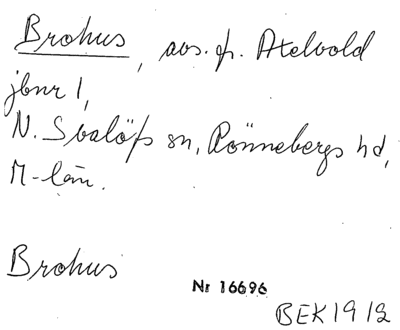 Brohus, avs. fr. Atelvold
jbnr 1,
N. Svalöfs sn, Rönnebergs hd,
M-län.
Brohus
Nr 16696
BEK 1912